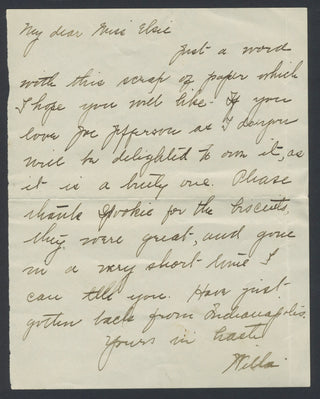 My dear Miss Elsie
Just a word
with this scrap of paper which
I hope you will like. If you
love Joe Jefferson as I do you
will be delighted to own it, as
it is a bully one. Please
thank Spookie for the biscuits,
they were great, and gone
in a very short time I
can tell you. Have just
gotten back from Indianapolis.
Yours in haste
Willa